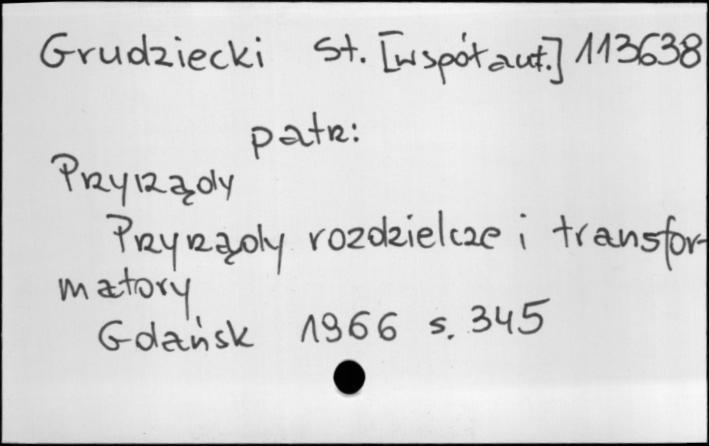 Grudziecki St. [współaut.] 113638
patrz:
Przyrządy
Przyrządy rozdzielcze i transfor-
matory
Gdańsk 1966 s. 345